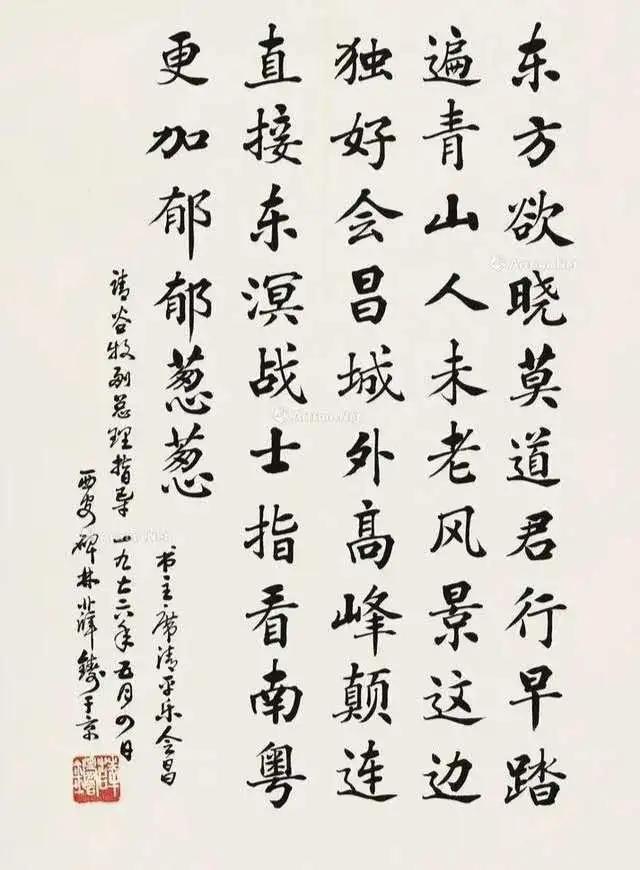 东方欲晓莫道君行早踏
遍青山人未老风景这边
独好会昌城外高峰颠连
直接东溟战士指看南粤
更加郁郁葱葱
书主席清平乐会昌
请谷牧副总理指导 一九七六年五月四日
西安碑林薛铸于京
Artron.Net
Artron.Net